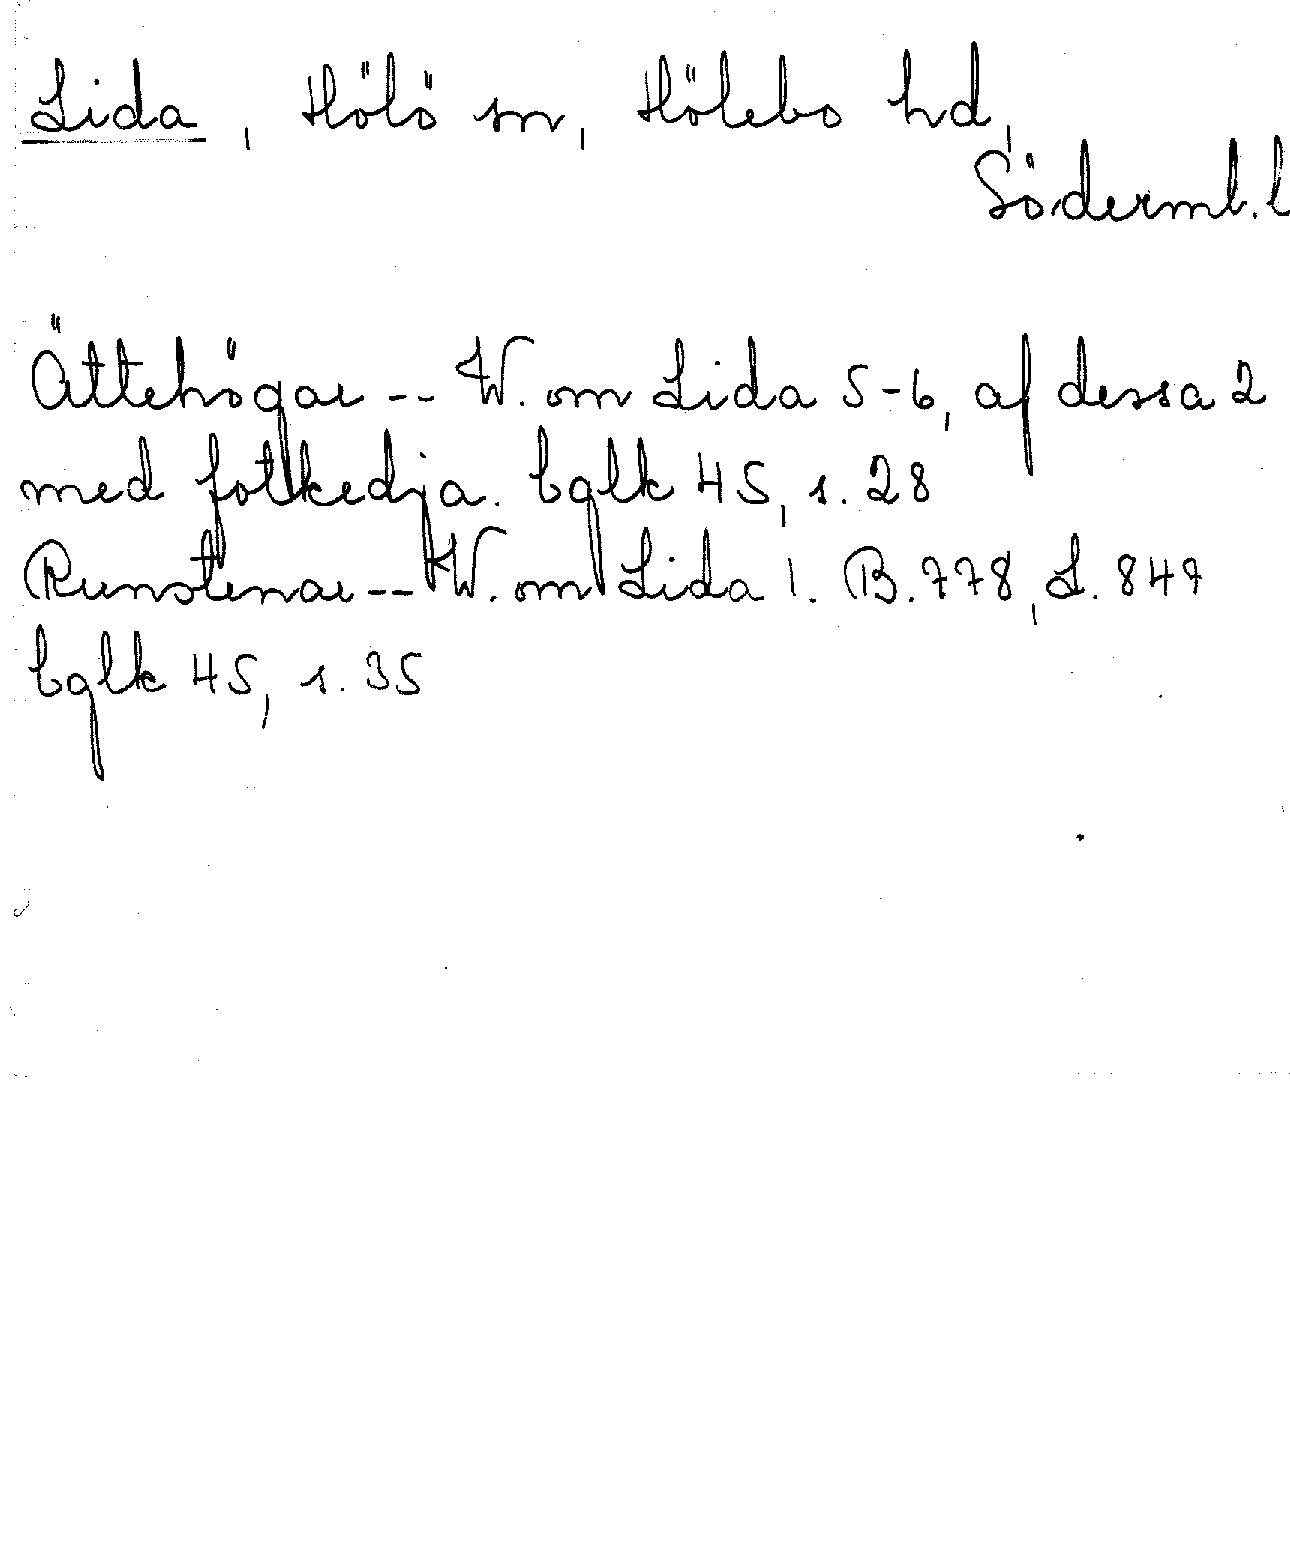 Lida, Hölö sn, Hölebo hd,
Söderml. l
Ättehögar -- W. om Lida 5-6, af dessa 2
med fotkedja. bglk 45, s. 28
Runstenar -- W. om Lida 1. B. 778, L. 849
bglk 45, s. 35